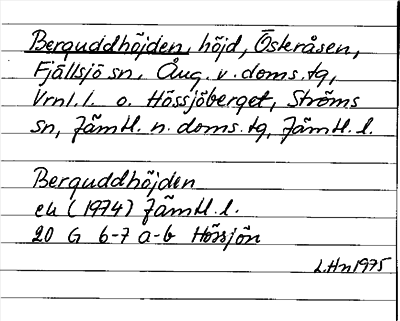 Berguddhöjden, höjd, Österåsen,
Fjällsjö sn, Ång. v. doms. tg,
Vrnl. l. o. Hössjöberget, Ströms
sn, Jämtl. n. doms. tg, Jämtl. l.
Berguddhöjden
ek (1974) Jämtl. l.
20 G 6-7 a-b Hössjön
L.Hn 1975